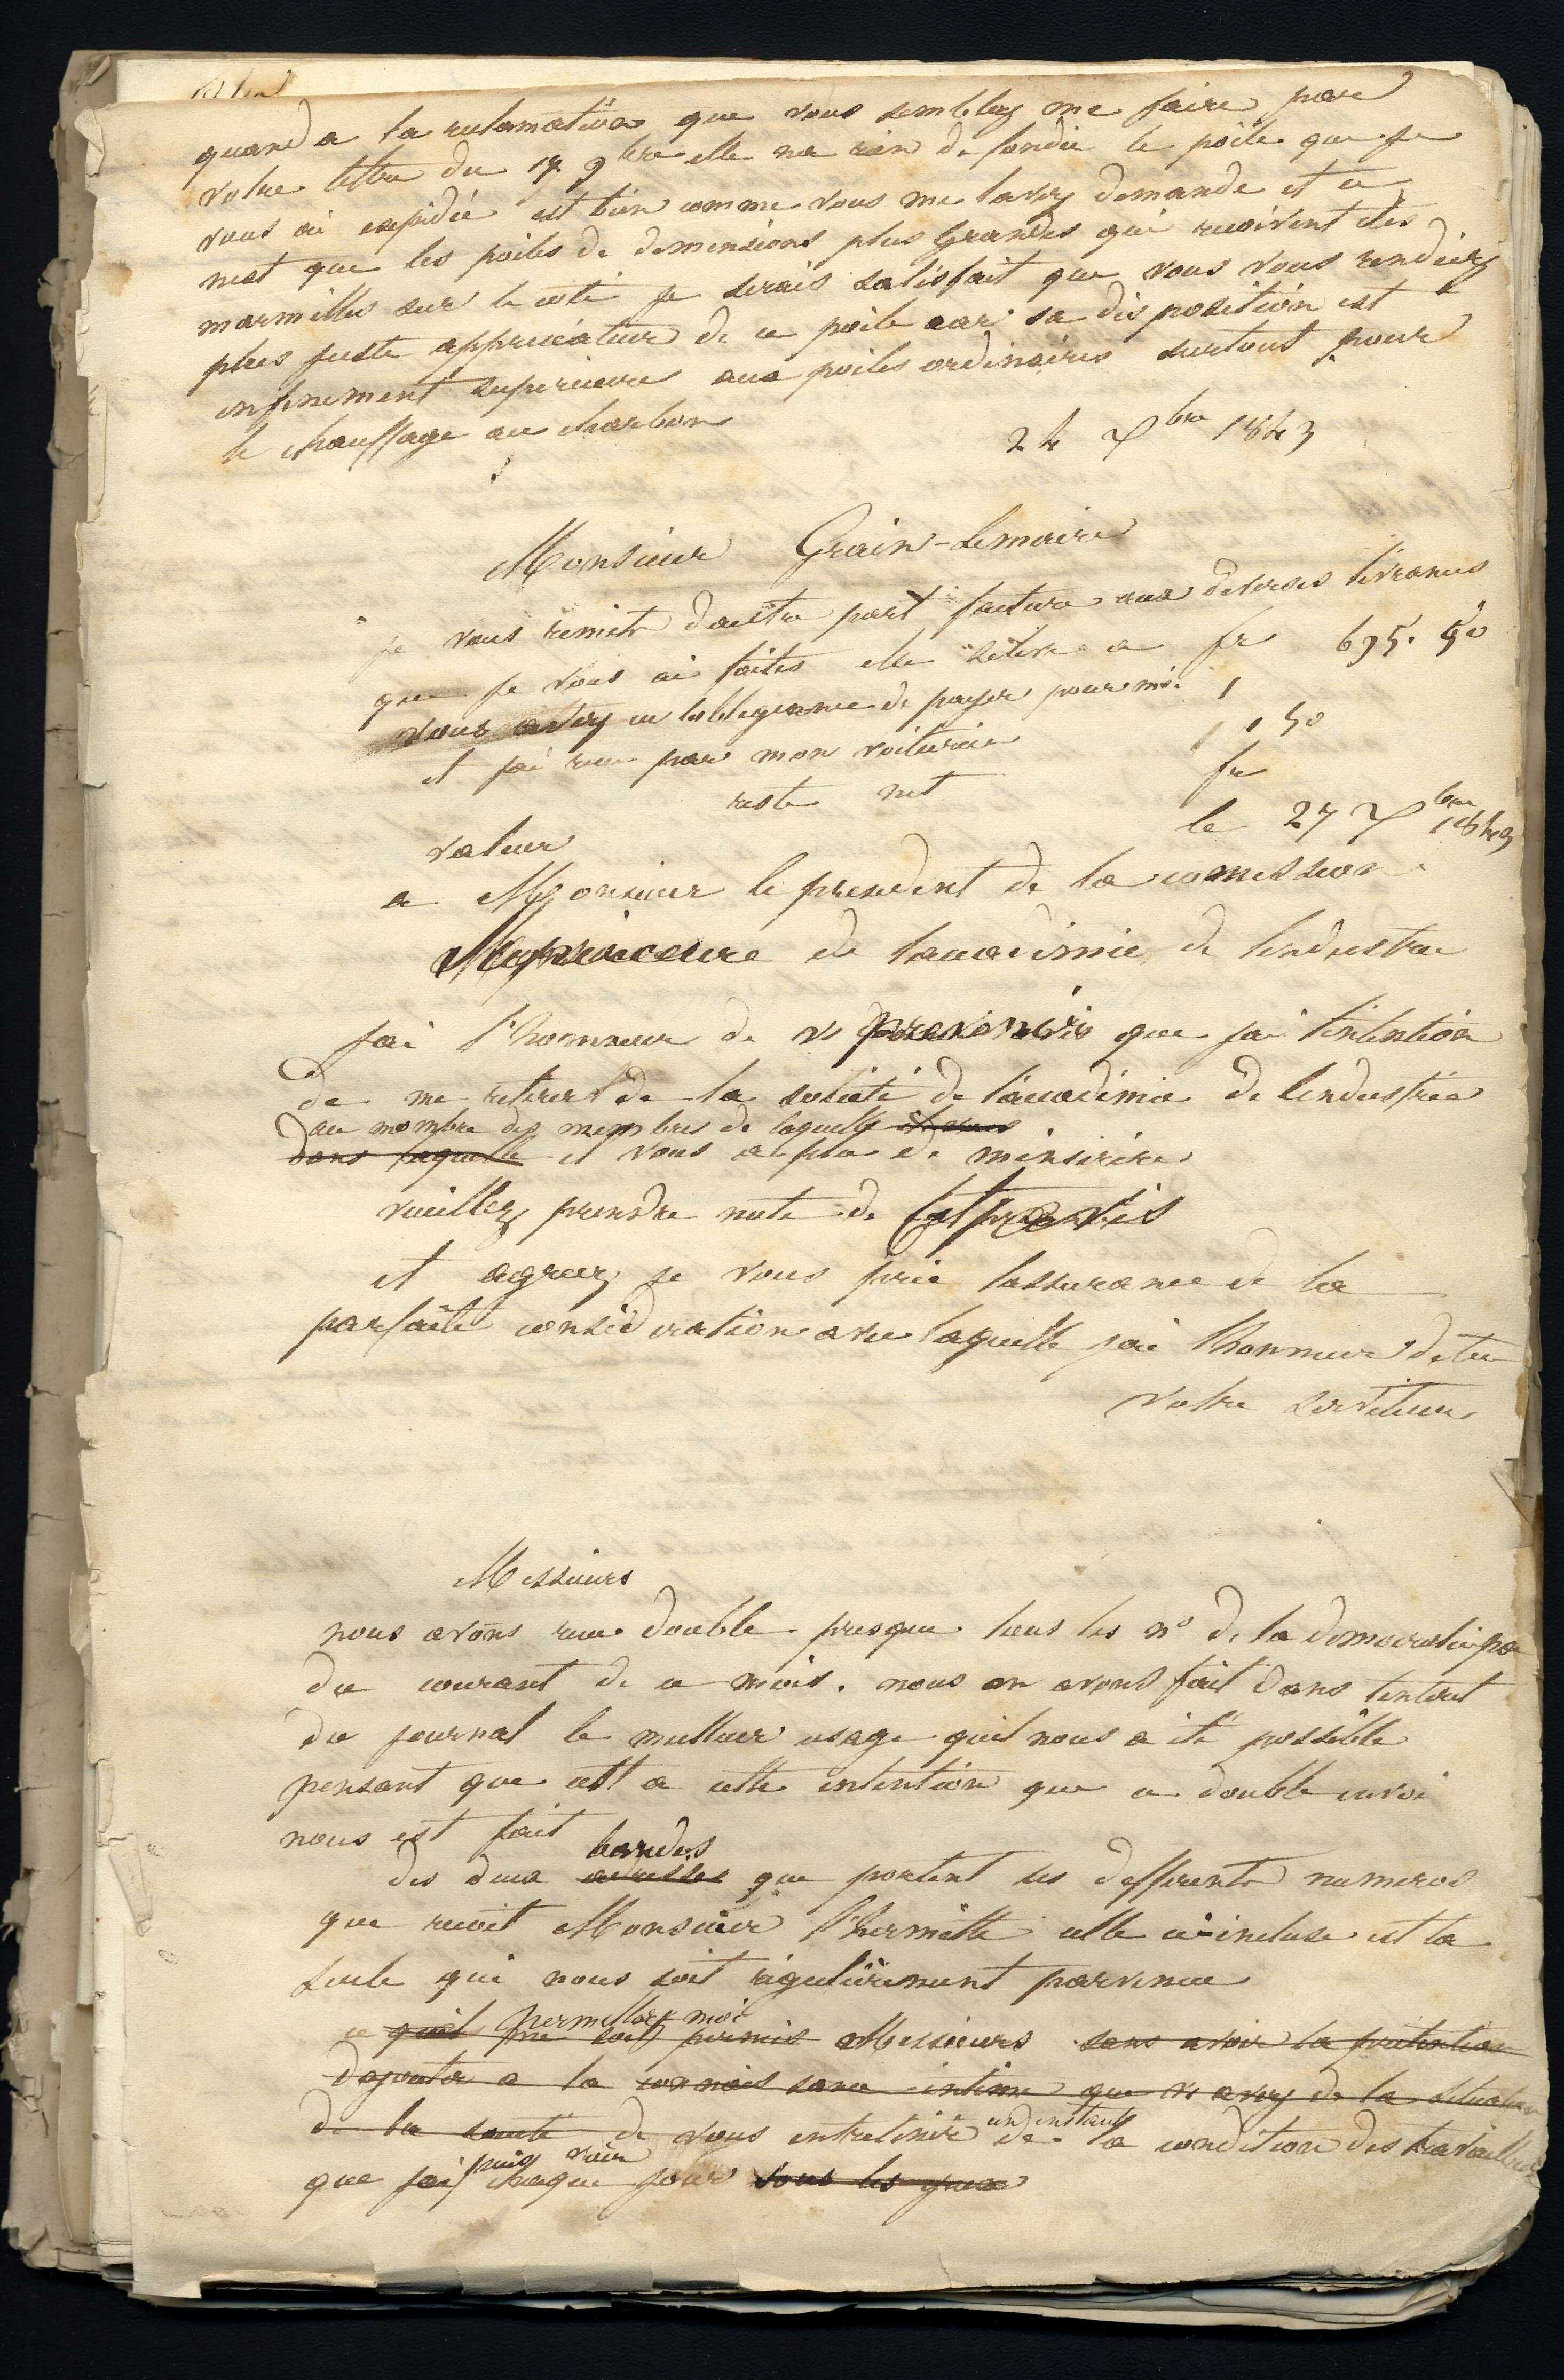 quand a la reclamation que vous semblez me faire par
votre lettre du 17 9bre elle na rien de fondée le poile que je
vous ai expédié est bien comme vous me lavez demande et ce
nest que les poiles de demensions plus Grandes qui recoivent des
marmittes sur le coté je serais satisfait que vous vous rendiez
plus juste appreciateur de ce poile car sa disposition est
infiniment superieure aux poiles ordinaires surtout pour
le chauffage au charbon
24 Xbre 1843
Monsieur Grain-Lemaire
je vous remets dautre part facture aux diverses livrances
que je vous ai faites elle séleve a fr 695. 50
vous avez eu lobligeance de payer pour moi
et jai recu par mon voiturier 50
reste net fr
valeur le 27 Xbre 1843
a Monsieur le president de la comission
de lacadémie de lindustrie
jai l'honneur de vs prevenir que jai lintention
de me retirer de la société de lacadémie de lindustrie
au nombre des membres de laquelle il vous
dans laquelle il vous a plu de minserire
veuillez prendre note de cet avis
et agreez je vous prie lassurance de la
parfaite considération avec laquelle jai lhonneur detre
votre serviteur
Messieurs
nous avons recu double presque tous les no de la democratie pa
du courant de ce mois. nous en avons fait dans linteret
du journal le meilleur usage quil nous a été possible
pensant que cest a cette intention que ce double envoi
nous est fait
bandes
des deux adresses que portent les differents numeros
que recoit Monsieur l'hermitte celle ci-incluse est la
seule qui nous soit régulièrement parvenue
permettez moi
ce quil me soit permis Messieurs sans avoir la pretention
dajouter a la connaissance intime que vs avez de la situation
de la santé de vous entretenir un instant de la condition des travailleurs
puis voir
que jai chaque jour sous les yeux